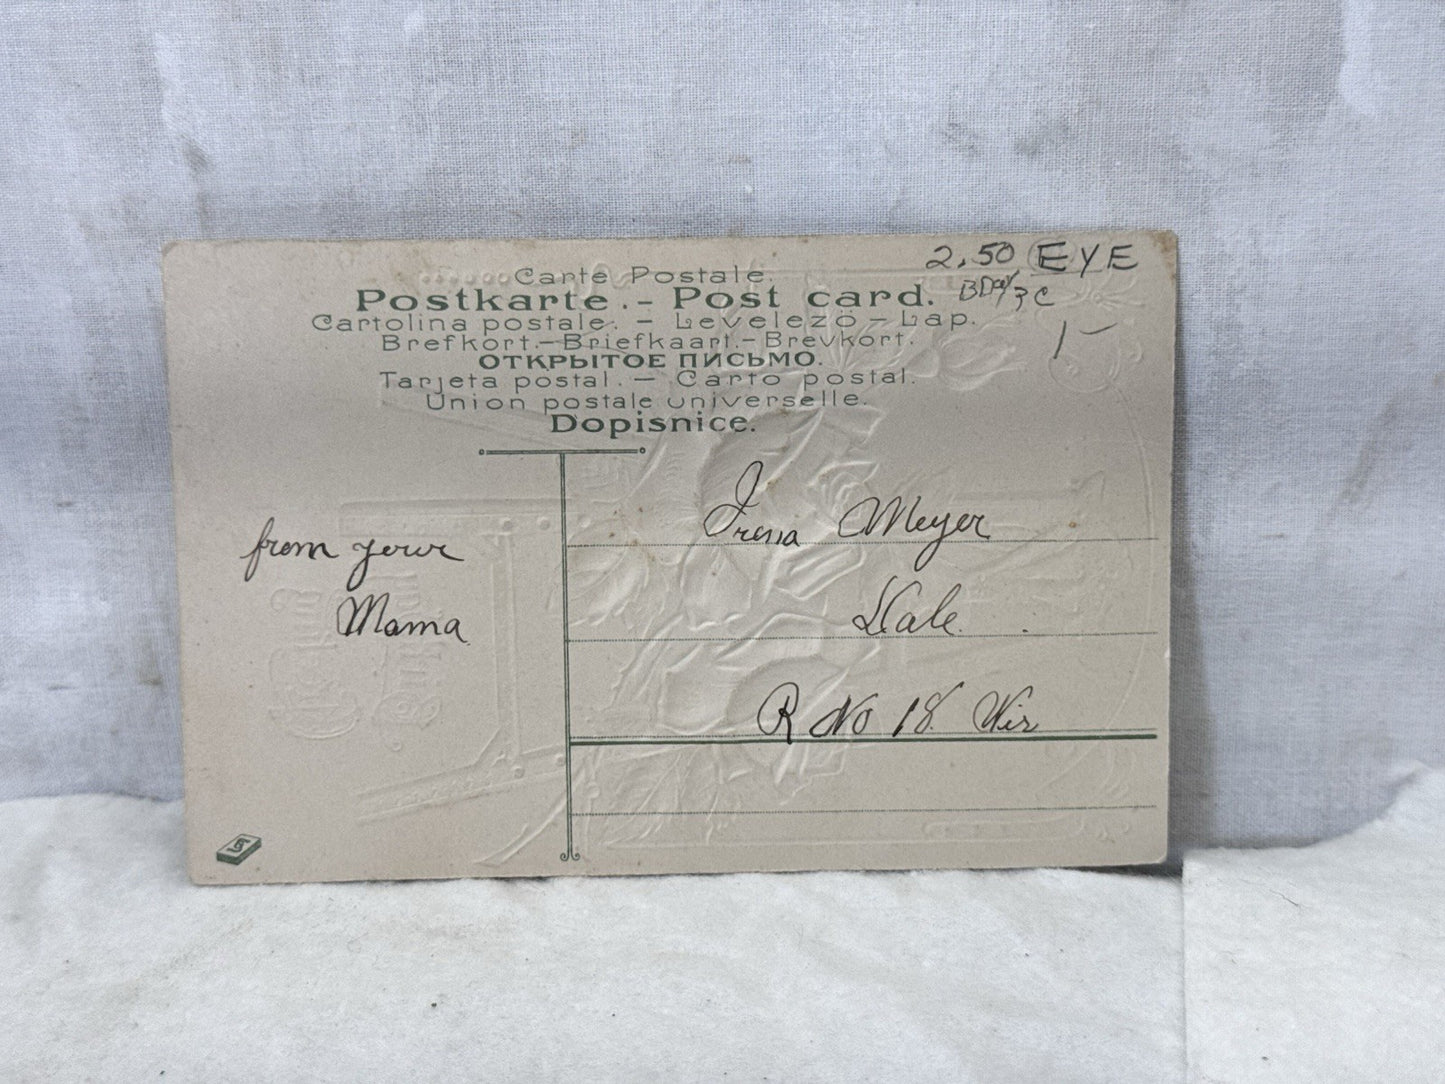 2.50 EYE
BDay PC
1-
Carte Postale.
Postkarte. - Post card.
Cartolina postale. - Levelezö - Lap.
Brefkort.-Briefkaart.-Brevkort.
ОТКРЫТОЕ ПИСЬМО.
Tarjeta postal. - Carto postal.
Union postale universelle.
Dopisnice.
from your
Mama
Irena Meyer
Dale.
R No 18. Wis